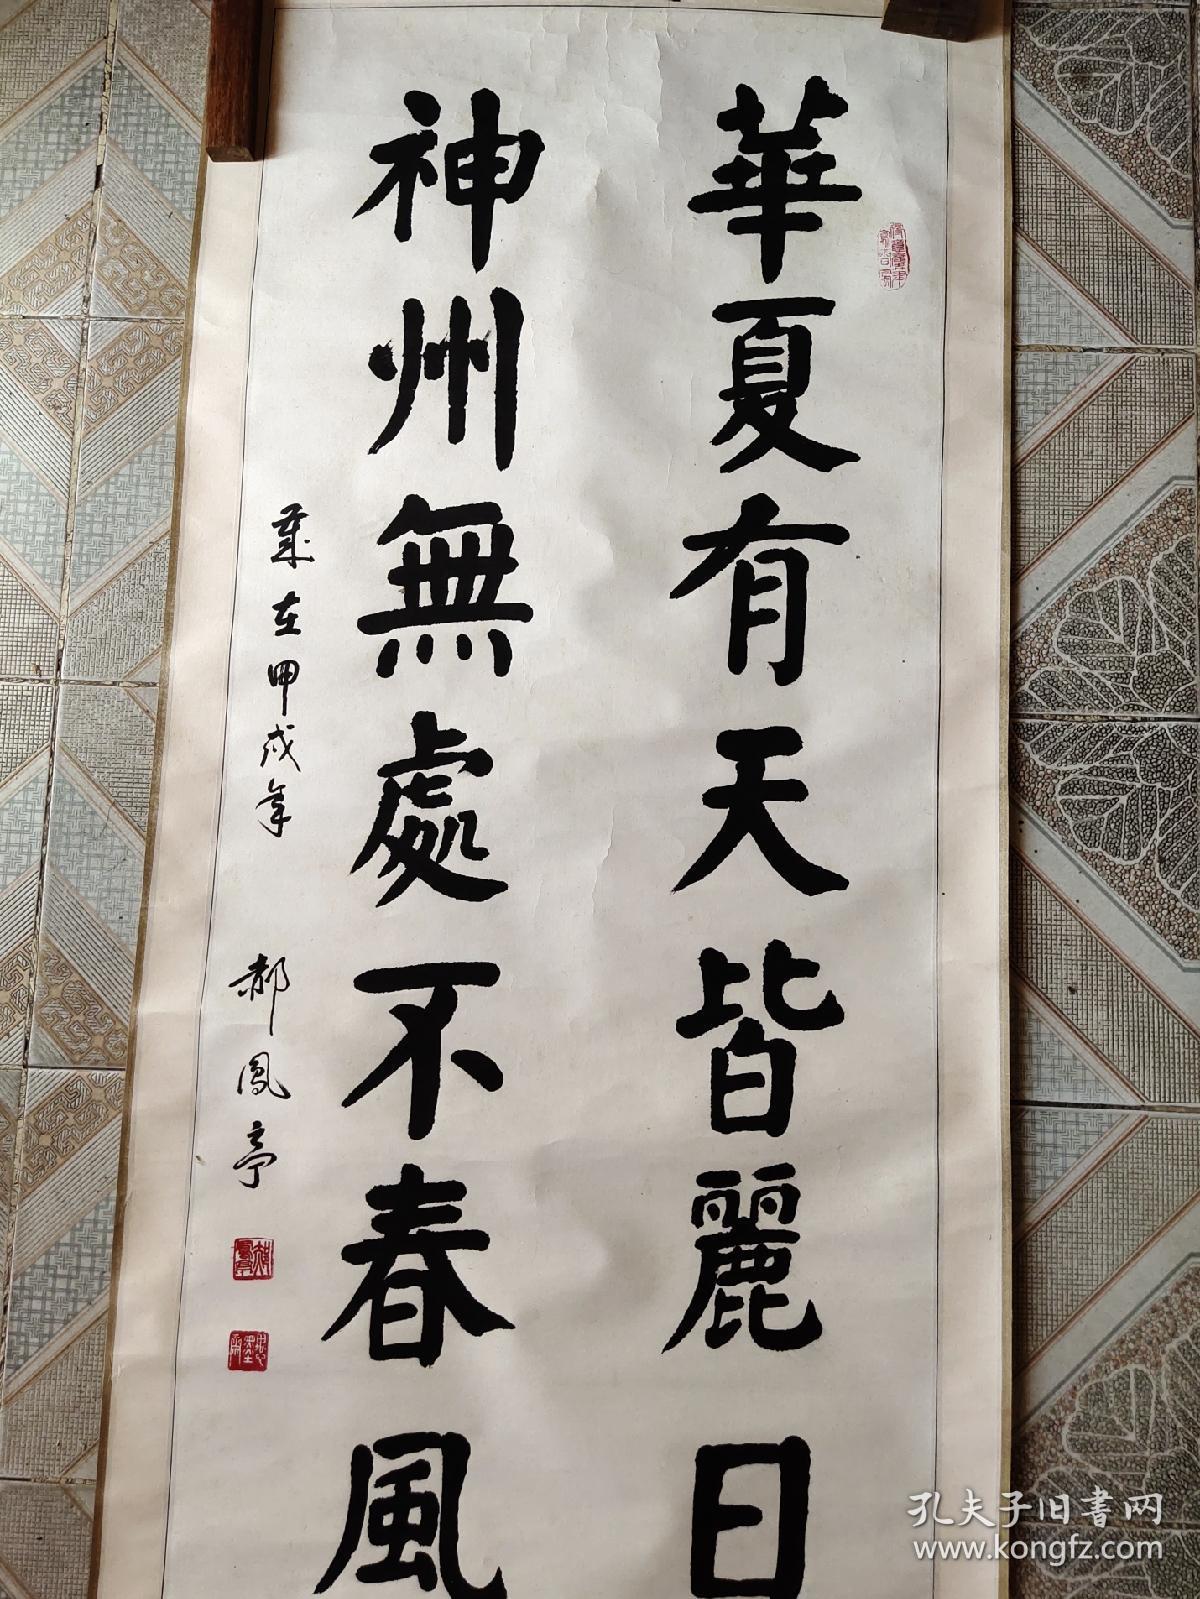 華夏有天皆麗日
神州無處不春風
歲在甲戌年
郝鳳亭
孔夫子旧書网
www.kongfz.com